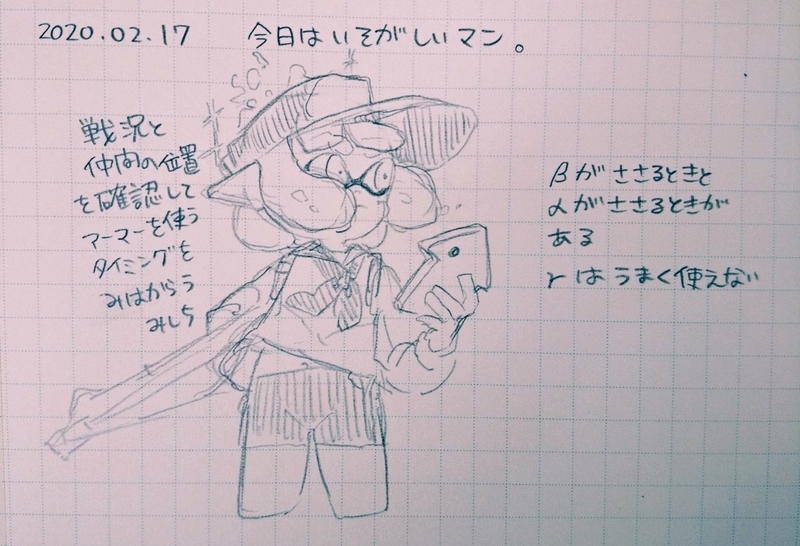 2020.02.17
今日はいそがしいマン。
戦況と
仲間の位置
を確認して
アーマーを使う
タイミングを
みはからう
みしち
βがささるときと
αがささるときが
ある
γはうまく使えない